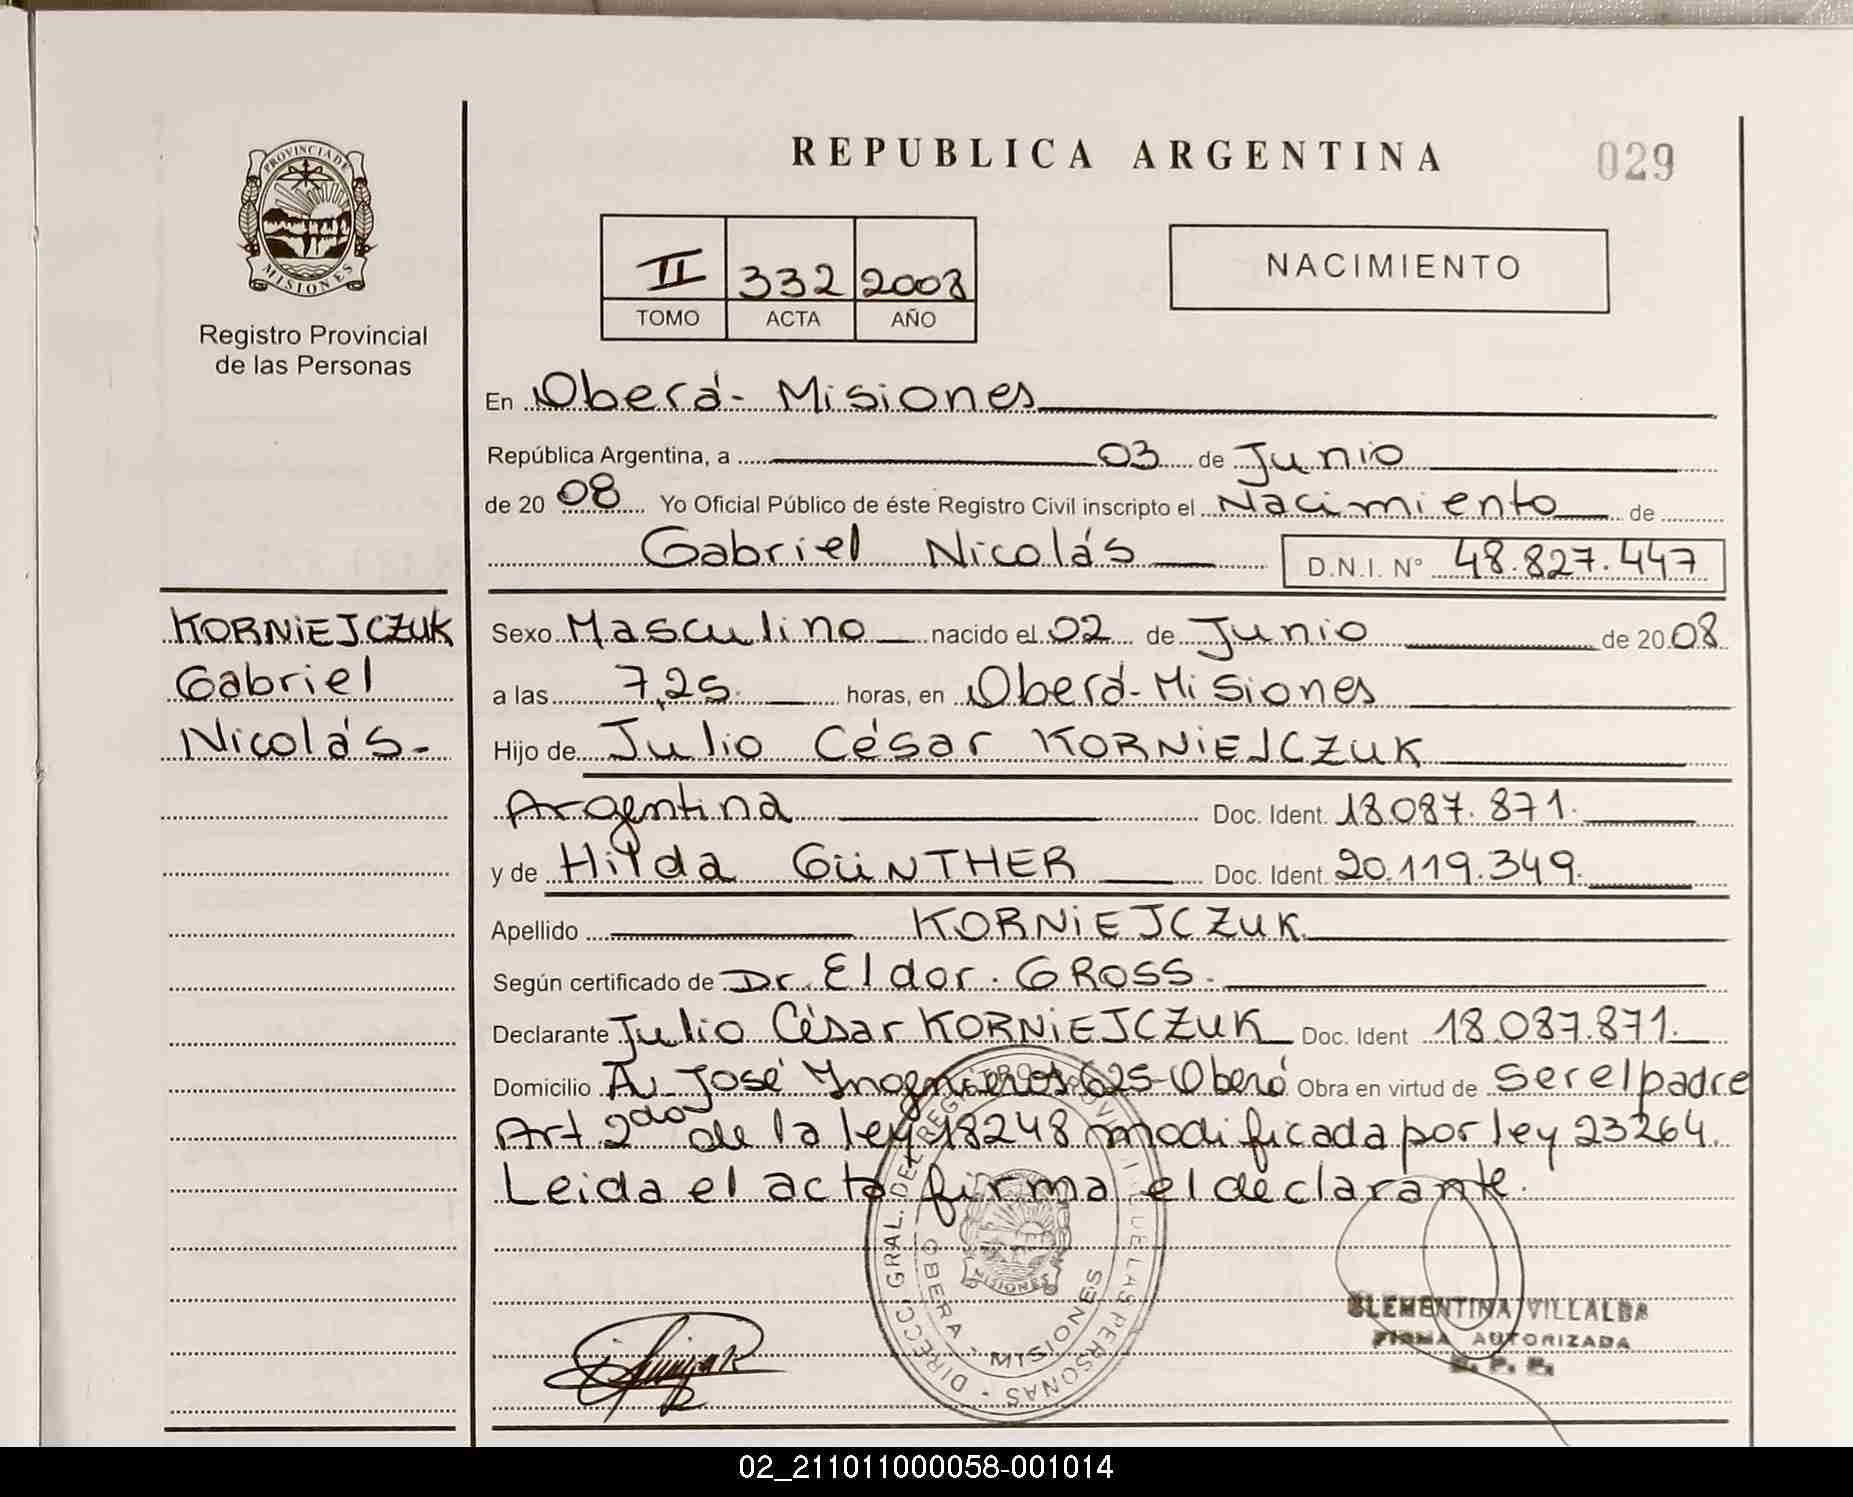 REPUBLICA ARGENTINA
029
PROVINCIA DE
MISIONES
Registro Provincial
de las Personas
II 332 2008
TOMO ACTA AÑO
NACIMIENTO
En Oberá- Misiones
República Argentina, a 03 de Junio
de 20 08 Yo Oficial Público de éste Registro Civil inscripto el Nacimiento de
Gabriel Nicolás D.N.I. N° 48.827.447
KORNIEJCZUK
Gabriel
Nicolás-
Sexo Masculino nacido el 02 de Junio de 20 08
a las 7,25 horas, en Oberá-Misiones
Hijo de Julio César KORNIEJCZUK
Argentina Doc. Ident. 18.087.871.
y de Hilda GüNTHER Doc. Ident. 20.119.349.
Apellido KORNIEJCZUK
Según certificado de Dr. Eldor. GROSS.
Declarante Julio César KORNIEJCZUK Doc. Ident 18.087.871.
Domicilio Av José Ingenieros 625-Oberá Obra en virtud de ser el padre
Art 2do de la ley 18248 modificada por ley 23264.
Leida el acta firma el declarante.
DIRECC. GRAL. DEL REGISTRO PROVINCIAL DE LAS PERSONAS
OBERA - MISIONES
MISIONES
CLEMENTINA VILLALBA
FIRMA AUTORIZADA
R. P. P.
02_211011000058-001014